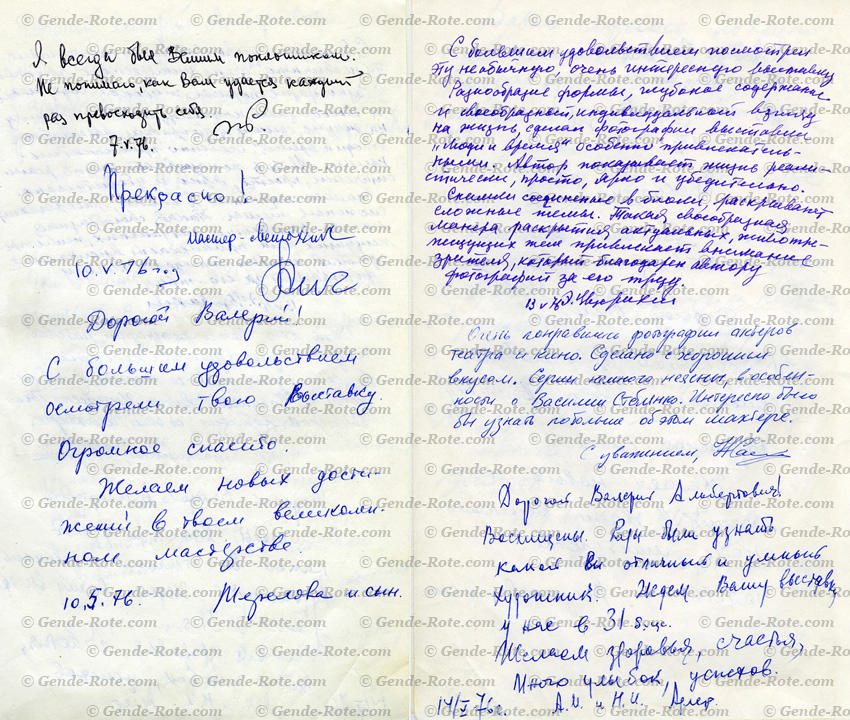 Я всегда был Вашим поклонником.
Не понимаю, как Вам удается каждый
раз превосходить себя
7.V.76.
Прекрасно!
10.V.76 год
Дорогой Валерий!
С большим удовольствием
осмотрели твою выставку.
Огромное спасибо.
Желаем новых дости-
жений в твоем великолеп-
ном мастерстве.
10.5.76. и сын.
С большим удовольствием посмотрел
эту необычную, очень интересную выставку
Разнообразие формы, глубокое содержание
и своеобразный, индивидуальный взгляд
на жизнь, сделал фотографии выставки
"Люди и время" особенно привлекатель-
ными. Автор показывает жизнь реали-
стически, просто, ярко и убедительно.
Снимки соединенные в блоки, раскрывают
сложные темы. Такая своеобразная
манера раскрытия актуальных, животре-
пещущих тем привлекает внимание
зрителя, который благодарен автору
фотографий за его труд.
13 V 76
Очень понравились фотографии актеров
театра и кино. Сделано с хорошим
вкусом. Серии немного неясны, в особен-
ности о Василии. Интересно было
бы узнать побольше об этом шахтере.
С уважением,
Дорогой Валерий Альбертович!
Восхищены. Рады были узнать
какой Вы отличный и умный
художник. Ждем Вашу выставку
у нас в 31
Желаем здоровья, счастья,
много улыбок, успехов.
14/V 76г. А.И. и Н.И.
© Gende-Rote.com